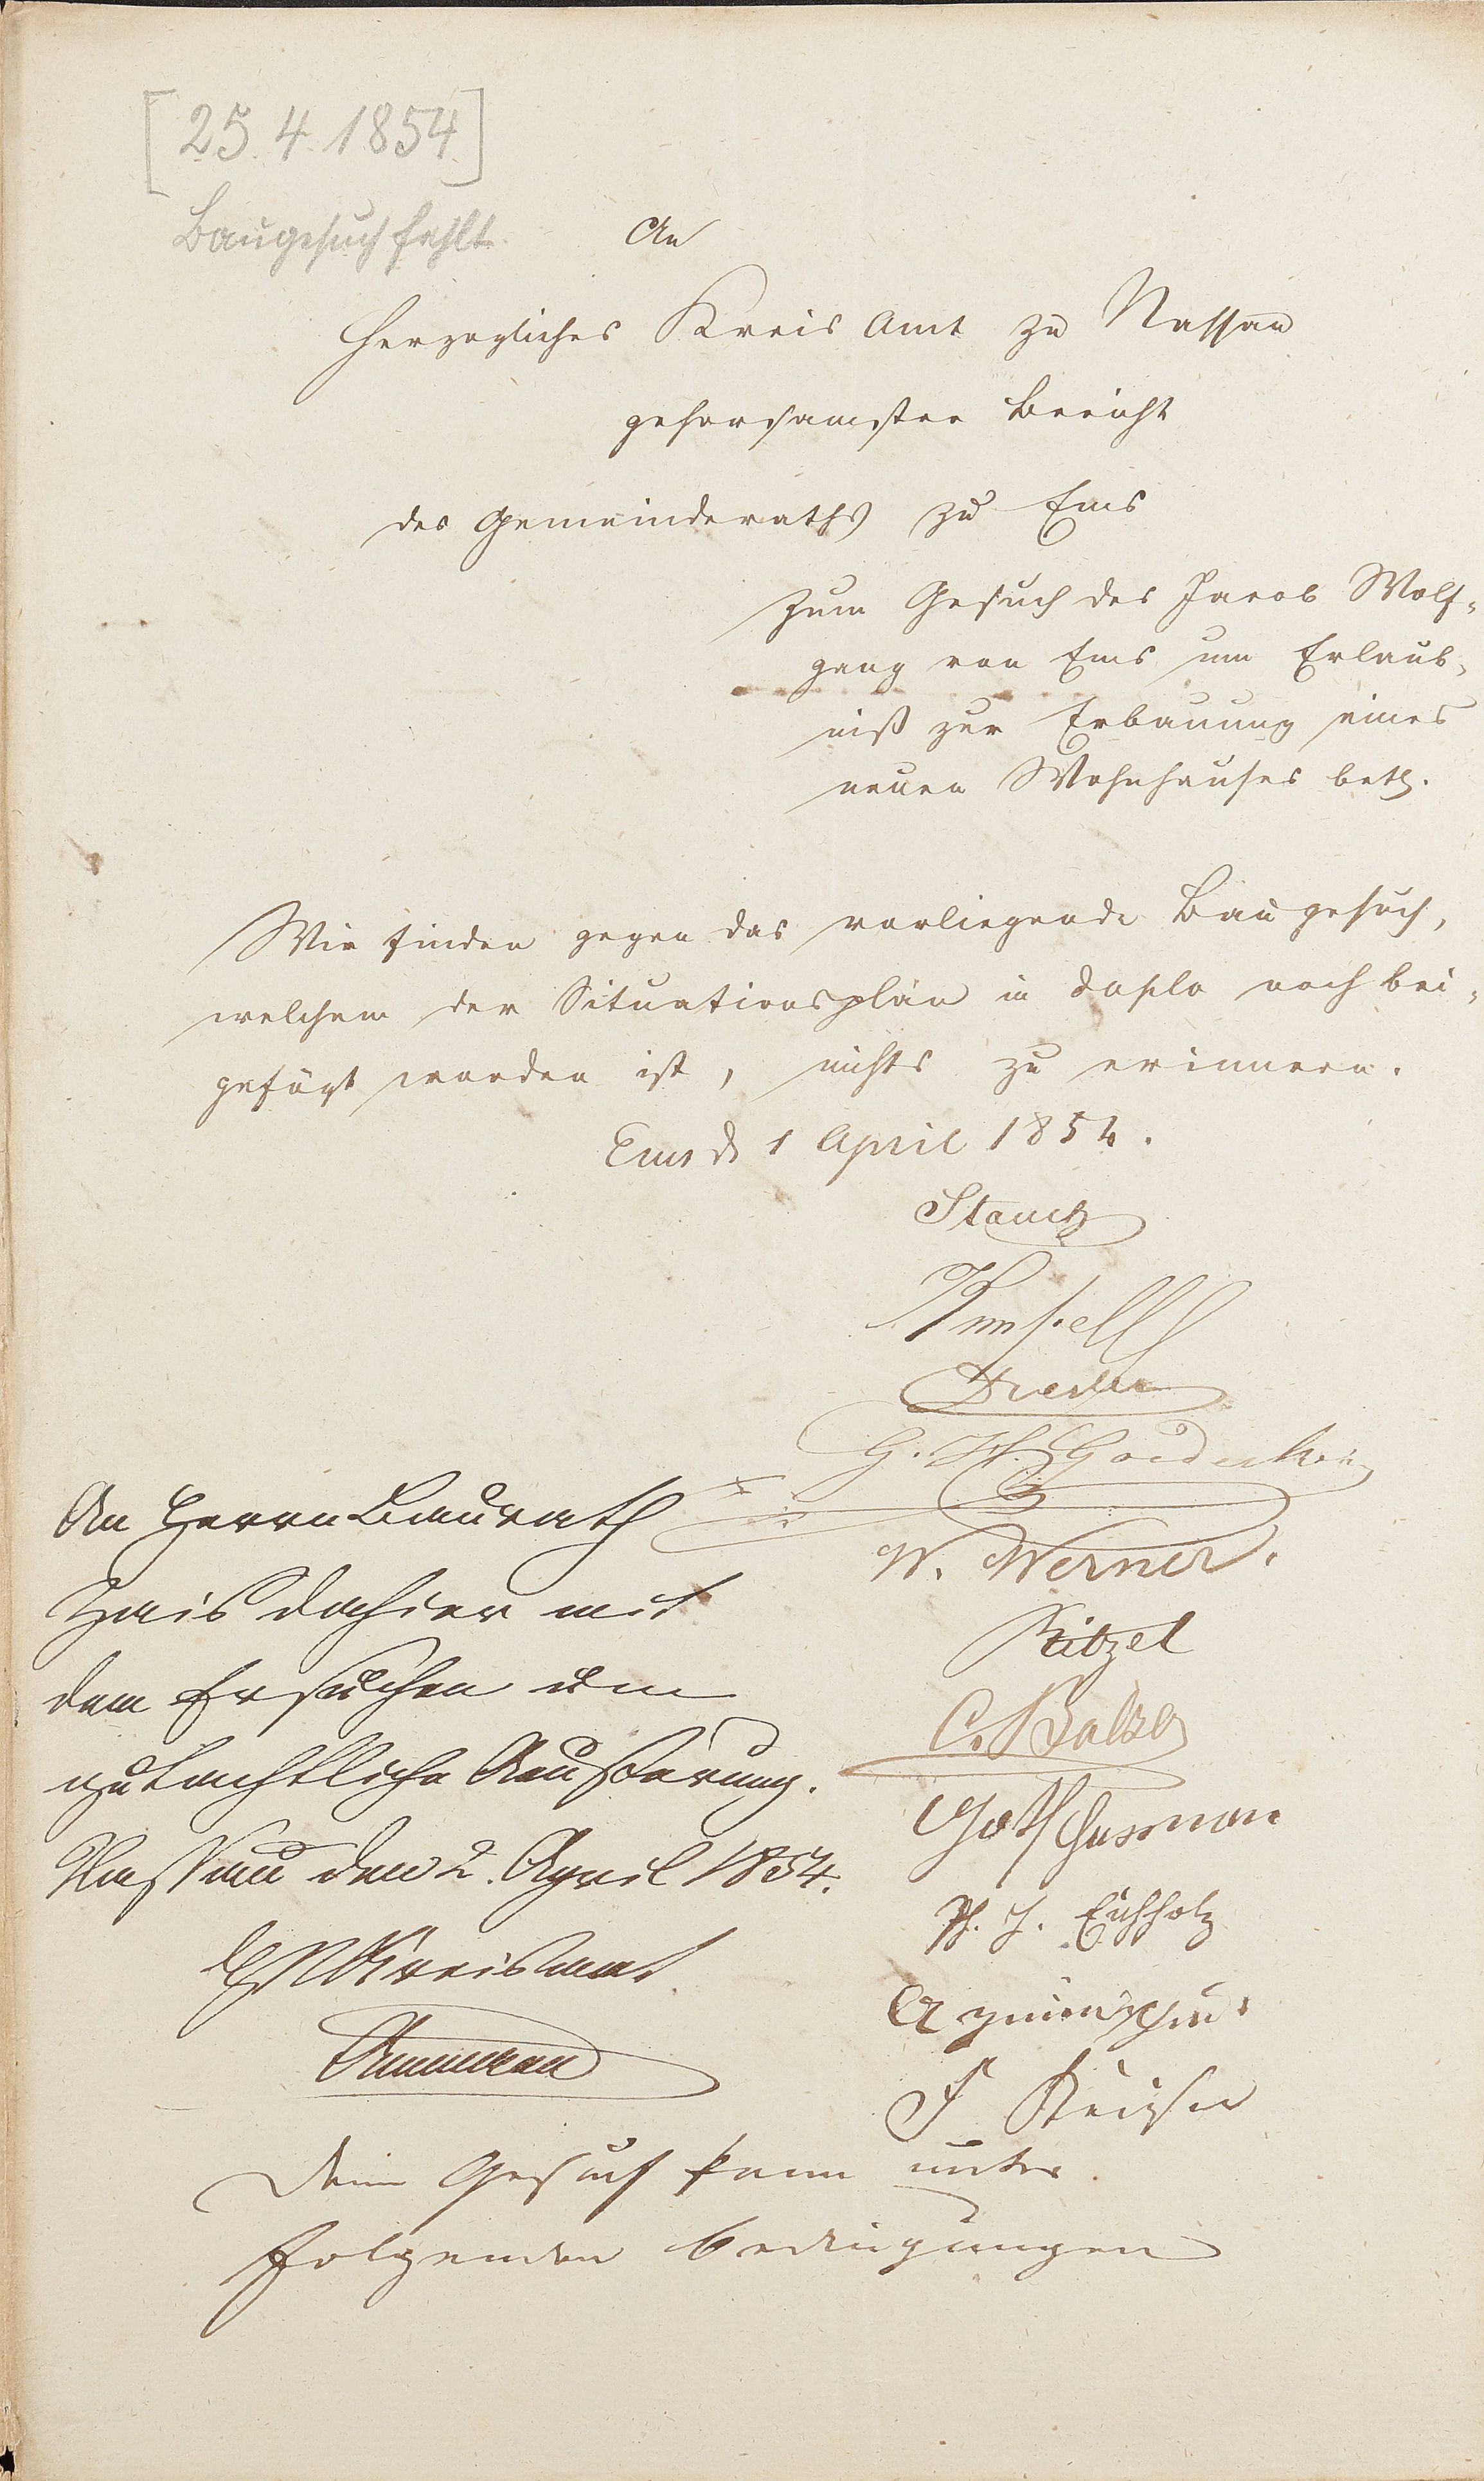 [25. 4. 1854]
Baugesuch fehlt.
An
Herzogliches Kreis Amt zu Nassau
gehorsamster Bericht
des Gemeinderaths zu Ems
zum Gesuch des Jacob Wolf-
gang von Ems um Erlaub-
niß zur Erbauung eines
neuen Wohnhauses betr.
Wir finden gegen das vorliegende Baugesuch,
welchem der Situationsplan in duplo noch bei-
gefügt worden ist, nichts zu erinnern.
Ems d 1 April 1854.
W. Werner.
Ritzel
C. Balzer
Ph. J. Eichholz
An Herrn Baurath
Zais dahier mit
dem Ersuchen um
gutachtliche Aeußerung.
Nassau den 2. April 1854.
HN Kreisamt
Dem Gesuch kann unter
folgenden Bedingungen